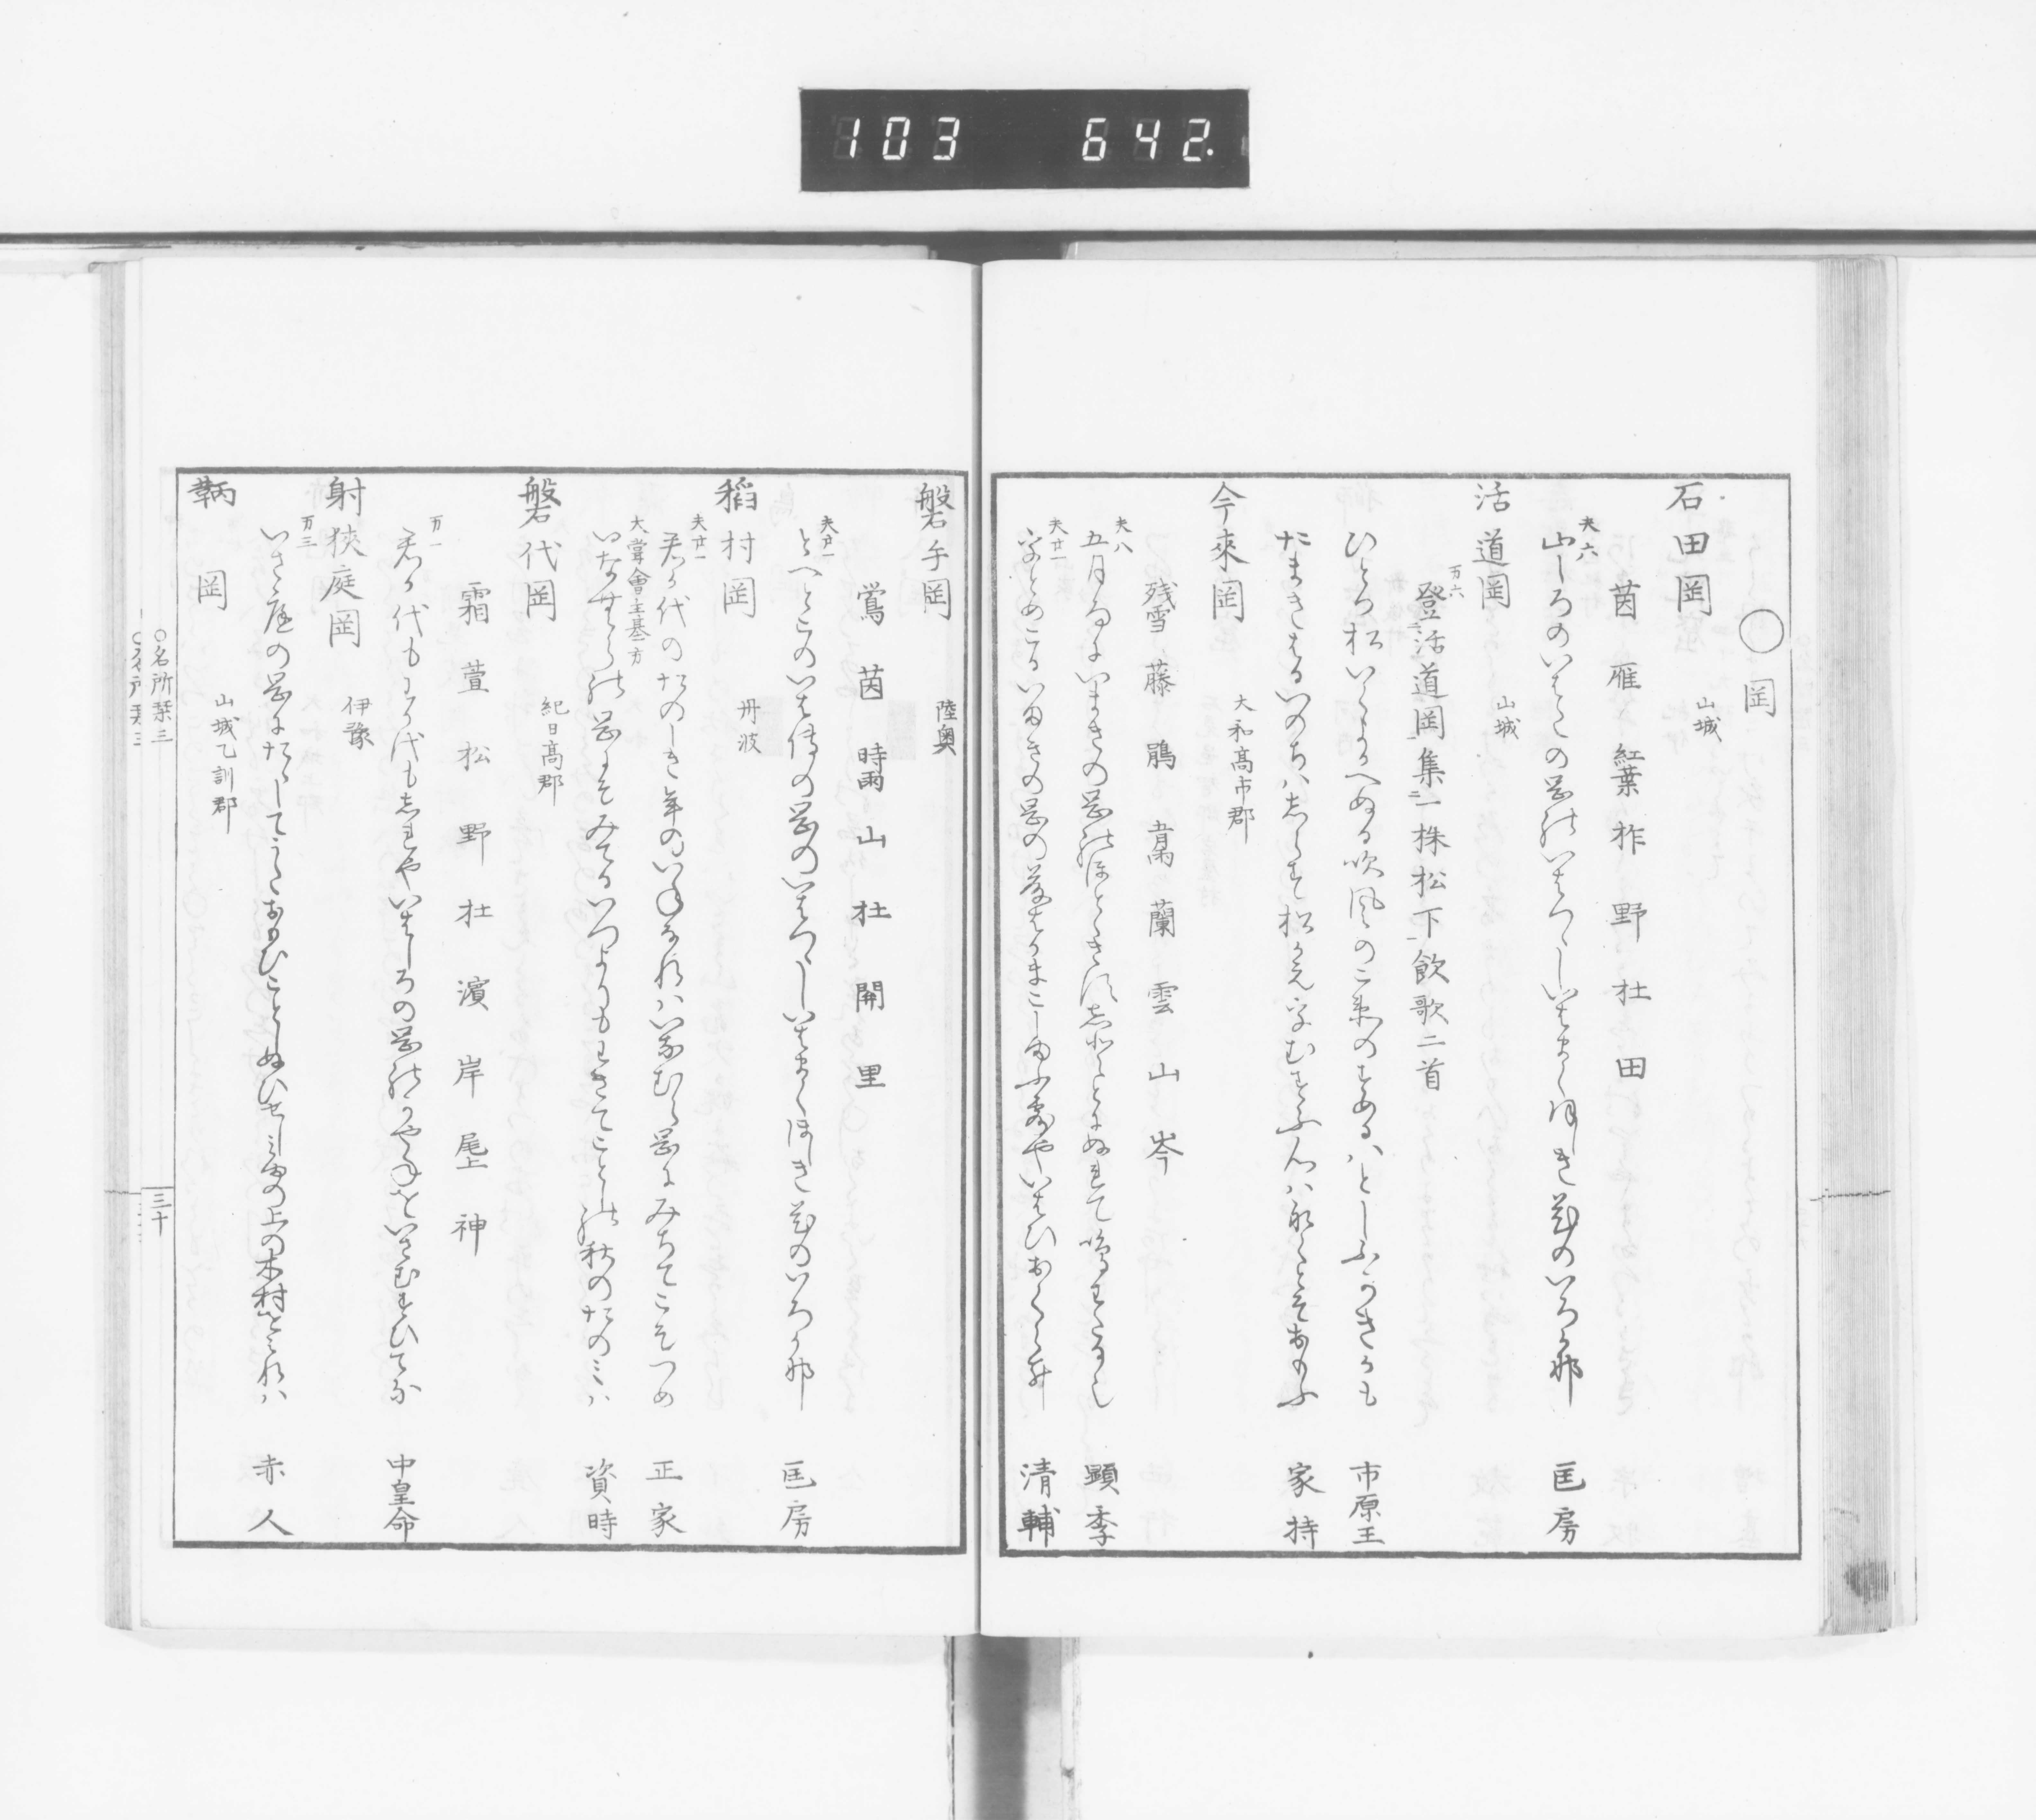 103 642.
○岡
石田岡 山城
茵 雁 紅葉 柞 野 杜 田
夫六 山しろのいはたの岡のいはつゝしいはまくほしき花のいろかな 匡房
活道岡 山城
万六 登活道岡集一株松下飲歌二首
ひとつ松いくよかへぬる吹風のこゑのすめるはとしふかきかも 市原王
たまきはるいのちはしらす松かえをむすふ心はなかくとそおもふ 家持
今來岡 大和高市郡
残雪 藤 鵑 萵 蘭 雲 山 岑
夫八 五月雨にいまきの岡のほとゝきすしとゝにぬれて鳴わたるなり 顕季
夫廿一 清輔
磐手岡 陸奥
鶯 茵 時雨 山 杜 関 里
夫廿一 とへとこのいはての岡のいはつゝしいはまくほしき花のいろかな 匡房
稻村岡 丹波
夫廿一 君か代のたのしき年のいねなれはいなむら岡にみちてこそつめ 正家
大嘗會主基方 いなむらの岡をそみつるいつよりもわきてことしの秋のたのみは 資時
磐代岡 紀日高郡
霜 萱 松 野 杜 濱 岸 尾上 神
万一 君か代もわか代もしれやいはしろの岡のかやねをいさむすひてな 中皇命
射狹庭岡 伊豫
万三 いさ庭の岡にたゝしてうたおもひことしぬひせしみゆの上の木村をみれは 赤人
鞆岡 山城乙訓郡
○名所栞三
三十